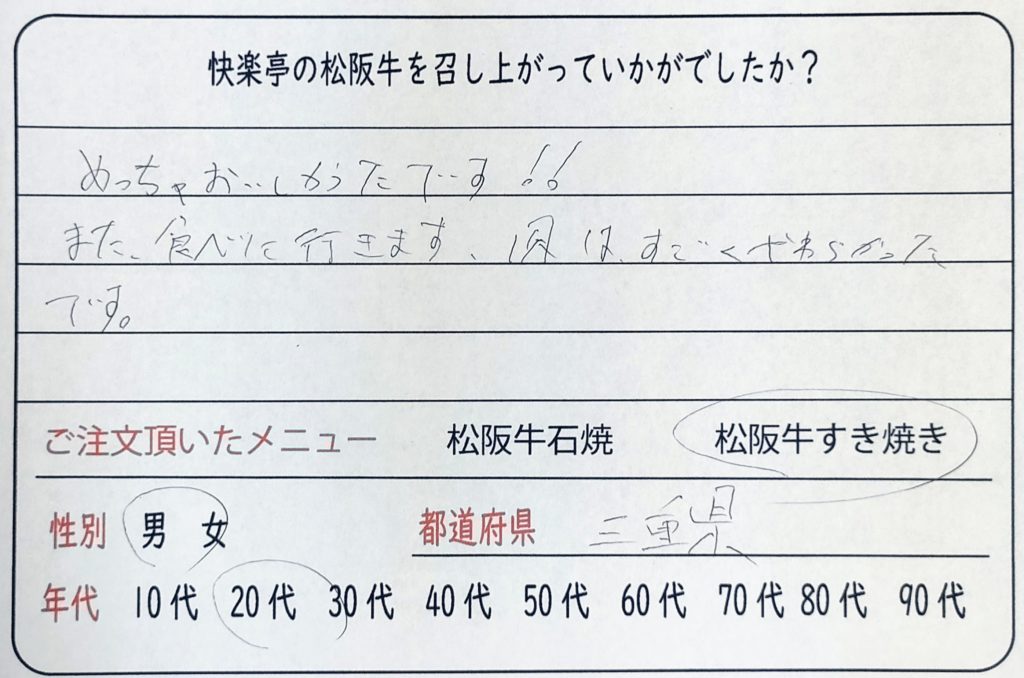 快楽亭の松阪牛を召し上がっていかがでしたか？
めっちゃおいしかったです!!
また、食べに行きます、肉は、すごくやわらかった
です。
ご注文頂いたメニュー 松阪牛石焼 松阪牛すき焼き
性別 男 女 都道府県 三重県
年代 10代 20代 30代 40代 50代 60代 70代 80代 90代